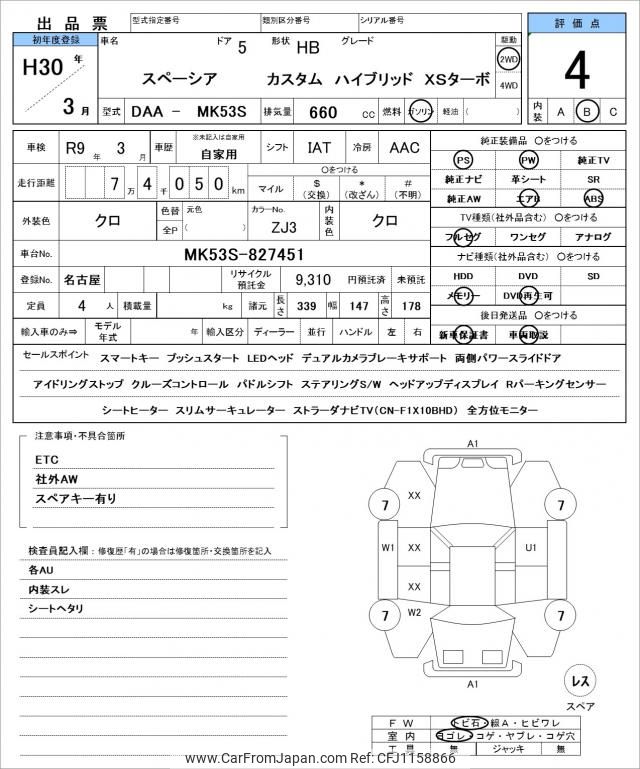 出品票 型式指定番号 類別区分番号 シリアル番号 評価点
初年度登録 車名 ドア 5 形状 HB グレード 駆動
H30 年 スペーシア カスタム ハイブリッド XSターボ 2WD 4
3 月 4WD
型式 DAA - MK53S 排気量 660 CC 燃料 ガソリン 軽油 ( ) 内装 A B C
車検 R9 年 3 月 車歴 ※未記入は自家用 自家用 シフト IAT 冷房 AAC 純正装備品 〇をつける
PS PW 純正TV
走行距離 7 万 4 千 0 5 0 km 〇をつける
マイル $ (交換) * (改ざん) # (不明) 純正ナビ 革シート SR
純正AW エアB ABS
外装色 クロ 色替 元色 カラーNo. 内装色 クロ TV種類(社外品含む) 〇をつける
全P ( ) ZJ3 フルセグ ワンセグ アナログ
車台No. MK53S-827451 ナビ種類(社外品含む) 〇をつける
登録No. 名古屋 リサイクル預託金 9,310 円預託済 未預託 HDD DVD SD
メモリー DVD再生可
定員 4 人 積載量 kg 諸元 長さ 339 幅 147 高さ 178 後日発送品 〇をつける
輸入車のみ⇒ モデル年式 年 輸入区分 ディーラー 並行 ハンドル 左 右 新車保証書 車両取説
セールスポイント スマートキー プッシュスタート LEDヘッド デュアルカメラブレーキサポート 両側パワースライドドア
アイドリングストップ クルーズコントロール パドルシフト ステアリングS/W ヘッドアップディスプレイ Rパーキングセンサー
シートヒーター スリムサーキュレーター ストラーダナビTV(CN-F1X10BHD) 全方位モニター
注意事項・不具合箇所
ETC
社外AW
スペアキー有り
検査員記入欄:修復歴「有」の場合は修復箇所・交換箇所を記入
各AU
内装スレ
シートヘタリ
A1
XX
7 7
W1 XX U1
XX
7 W2 7
A1
レス
スペア
FW トビ石・線A・ヒビワレ
室内 ヨゴレ・コゲ・ヤブレ・コゲ穴
工具 無 ジャッキ 無
www.CarFromJapan.com Ref: CFJ1158866